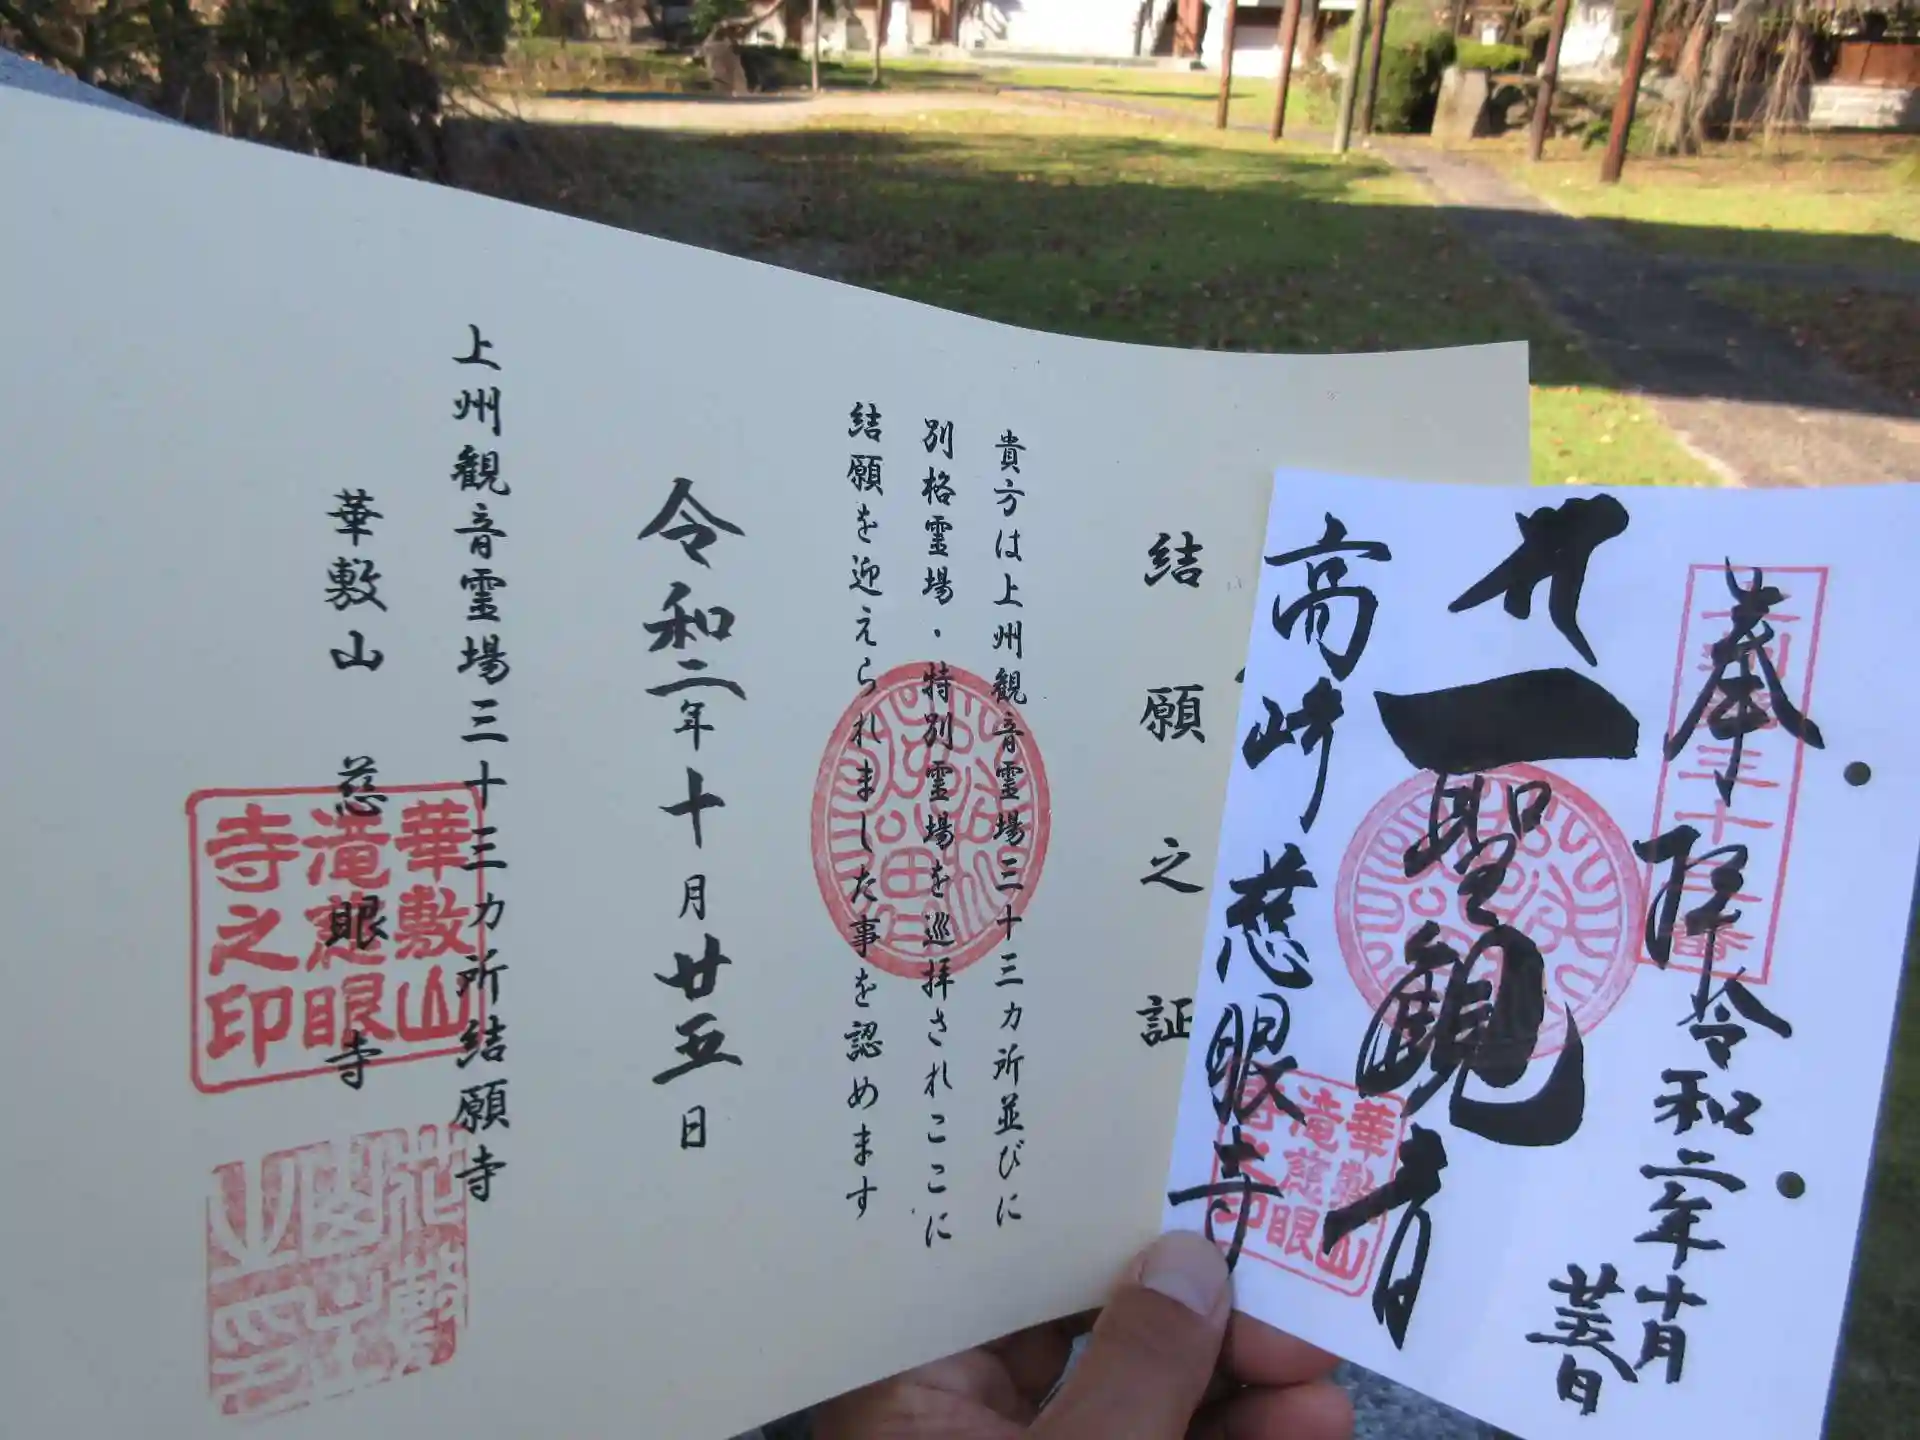 奉拝
令和二年十月廿五日
聖観音
高崎 慈眼寺
華敷山
滝慈眼
寺之印
結願之証
貴方は上州観音霊場三十三カ所並びに
別格霊場・特別霊場を巡拝されここに
結願を迎えられました事を認めます
令和二年十月廿五日
上州観音霊場三十三カ所結願寺
華敷山 慈眼寺
華敷山
滝慈眼
寺之印